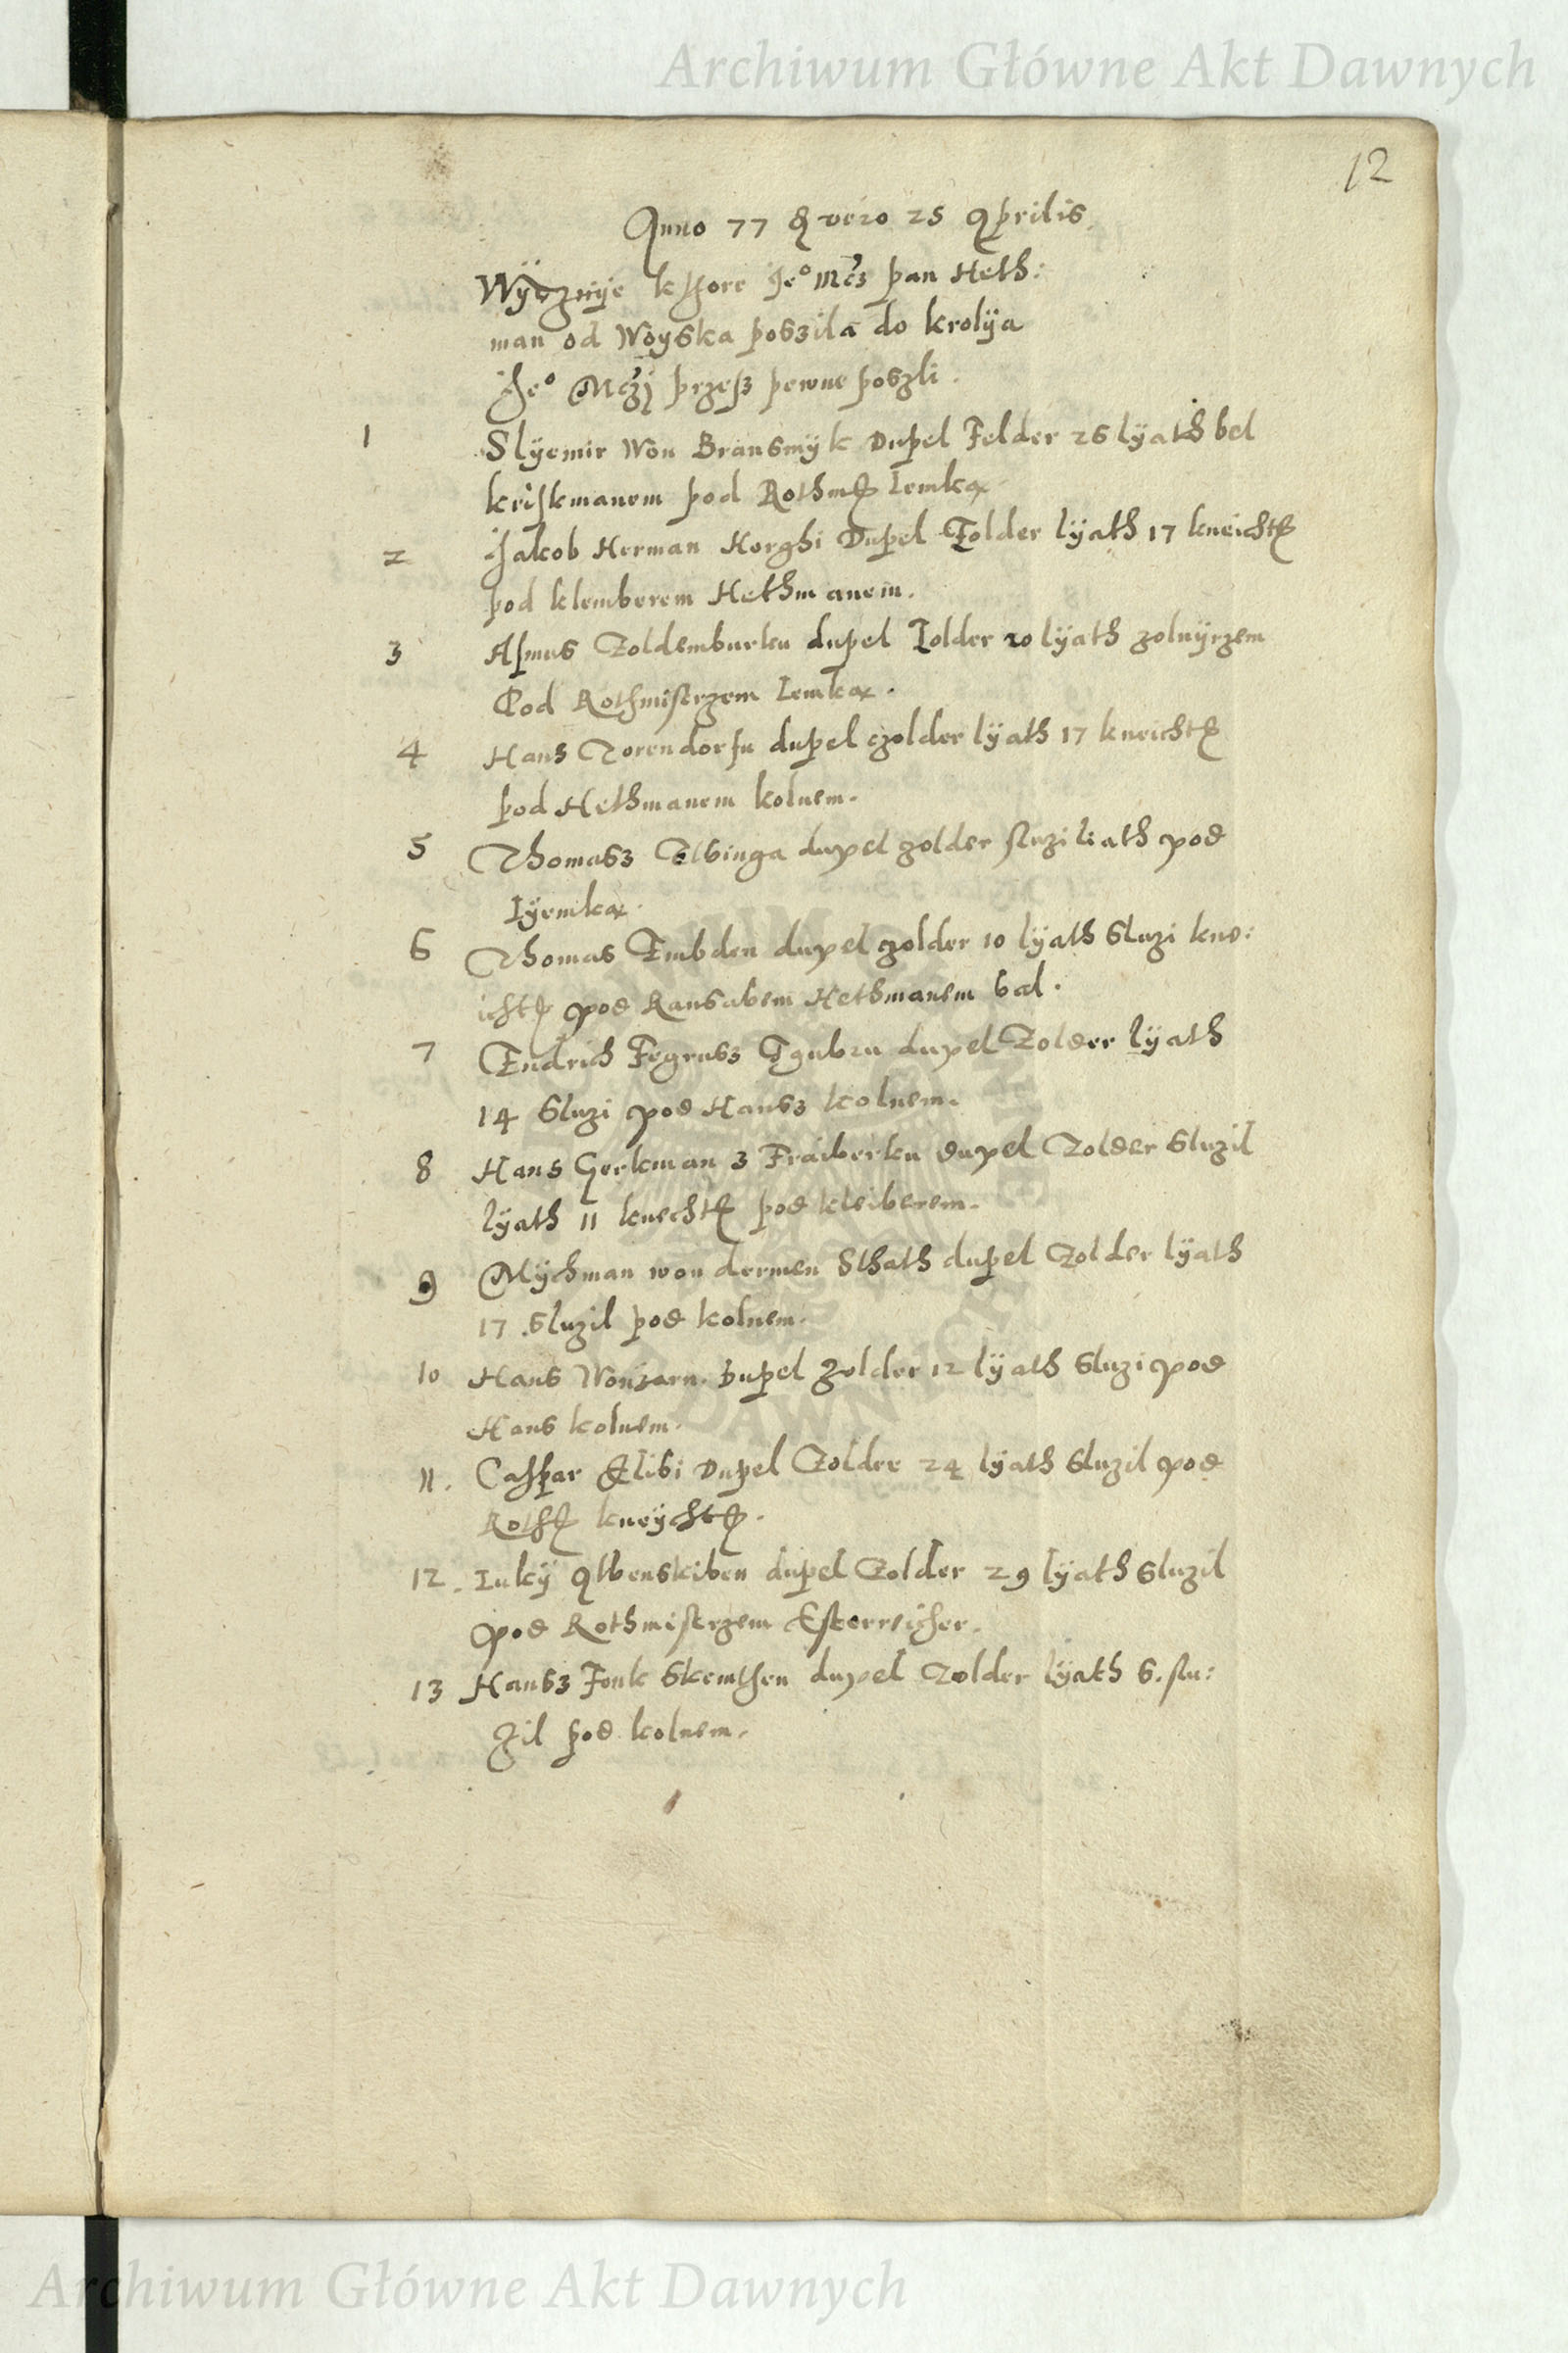 Archiwum Główne Akt Dawnych
12
Anno 77 vero 25 Aprilis
Wyęznÿe kthore Je° Mcz pan Heth:
man od Woyska poszila do krolÿa
Je° Mczj przesz pewne poszli.
1 Slÿemir Won Bransmÿk Dupel Felder 26 lÿath bel
kriskmanem pod Rothm Lemka
2 Jakob Herman Horghi Dupel Tolder lÿath 17 kneicht
pod klemberem Hethmanem.
3 Asmus Zoldemburku dupel Zolder 20 lÿath zolnÿrzem
Pod Rothmistrzem Lemka.
4 Hans Torendorfu dupel czolder lÿath 17 kneicht
pod Hethmanem kolnem.
5 Thomasz Elbinga dupel zolder sluzi liath pod
Lÿemka.
6 Thomas Embden dupel zolder 10 lÿath sluzi kne:
icht pod Ransabem Hethmanem bal.
7 Endrich Fegrusz dupel Zolder lÿath
14 sluzi pod Hansz kolnem.
8 Hans Gerkman z Fraiberku dupel Zolder sluzil
lÿath 11 knecht pod kleiberem.
9 Mÿchman won dermen Sthath dupel Zolder lÿath
17 sluzil pod kolnem.
10 Hans Wonzarn. Dupel zolder 12 lÿath sluzi pod
Hans kolnem.
11. Caspar Elibi Dupel Zolder 24 lÿath sluzil pod
Roth kneÿcht.
12. Lukÿ Albenskiben dupel Zolder 29 lÿath sluzil
pod Rothmistrzem Esterreicher.
13 Hansz Fonk Skemthen dupel Zolder lÿath 6. slu:
zil pod kolnem.
Archiwum Główne Akt Dawnych